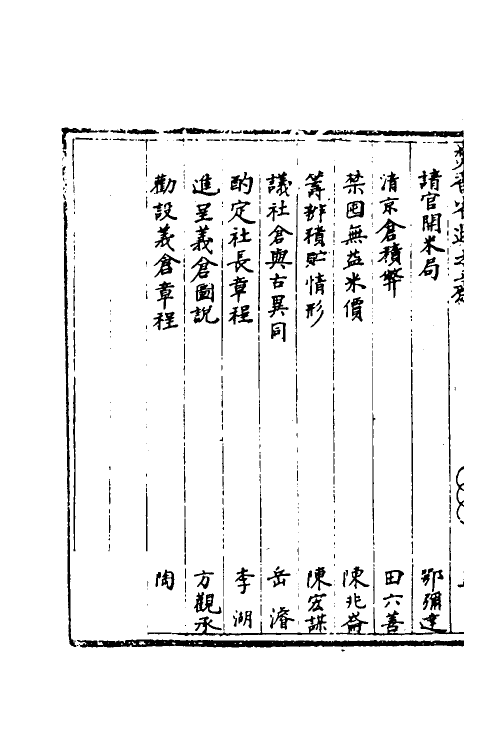 請官開米局 鄂彌達
清京倉積弊 田六善
禁囤無益米價 陳兆崙
籌辦積貯情形 陳宏謀
議社倉與古異同 岳濬
酌定社長章程 李湖
進呈義倉圖説 方觀承
勸設義倉章程 陶